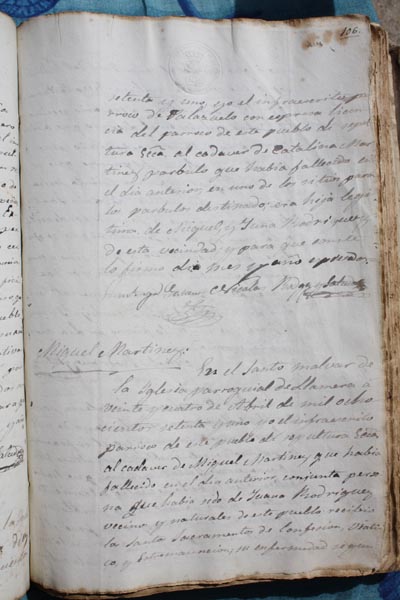 106.
setenta y uno, yo el infraescrito pa-
rroco de Palazuelo con espresa licen-
cia del parroco de este pueblo di sepul-
tura Ecca. al cadaver de Catalina Mar-
tinez parbulo que habia fallecido en
el dia anterior, en uno de los sitios para
los parbulos destinado; era hija legi-
tima de Miguel, y Juana Rodriguez
de esta vecindad y para que conste
lo firmo dia mes y año espresado
Juan
Miguel Martinez
En el Santo
la Iglesia parroquial de Llamera á
veinte y cuatro de Abril de mil ocho
cientos setenta y uno yo el infraescrito
parroco de este pueblo di sepultura Ecca.
al cadaver de Miguel Martinez, que habia
fallecido en el dia anterior, conjunta perso
na que habia sido de Juana Rodriguez,
vecino, y naturales de este pueblo recibio
los Santos Sacramentos de Confesion, Viati
co, y Estremauncion, su enfermedad